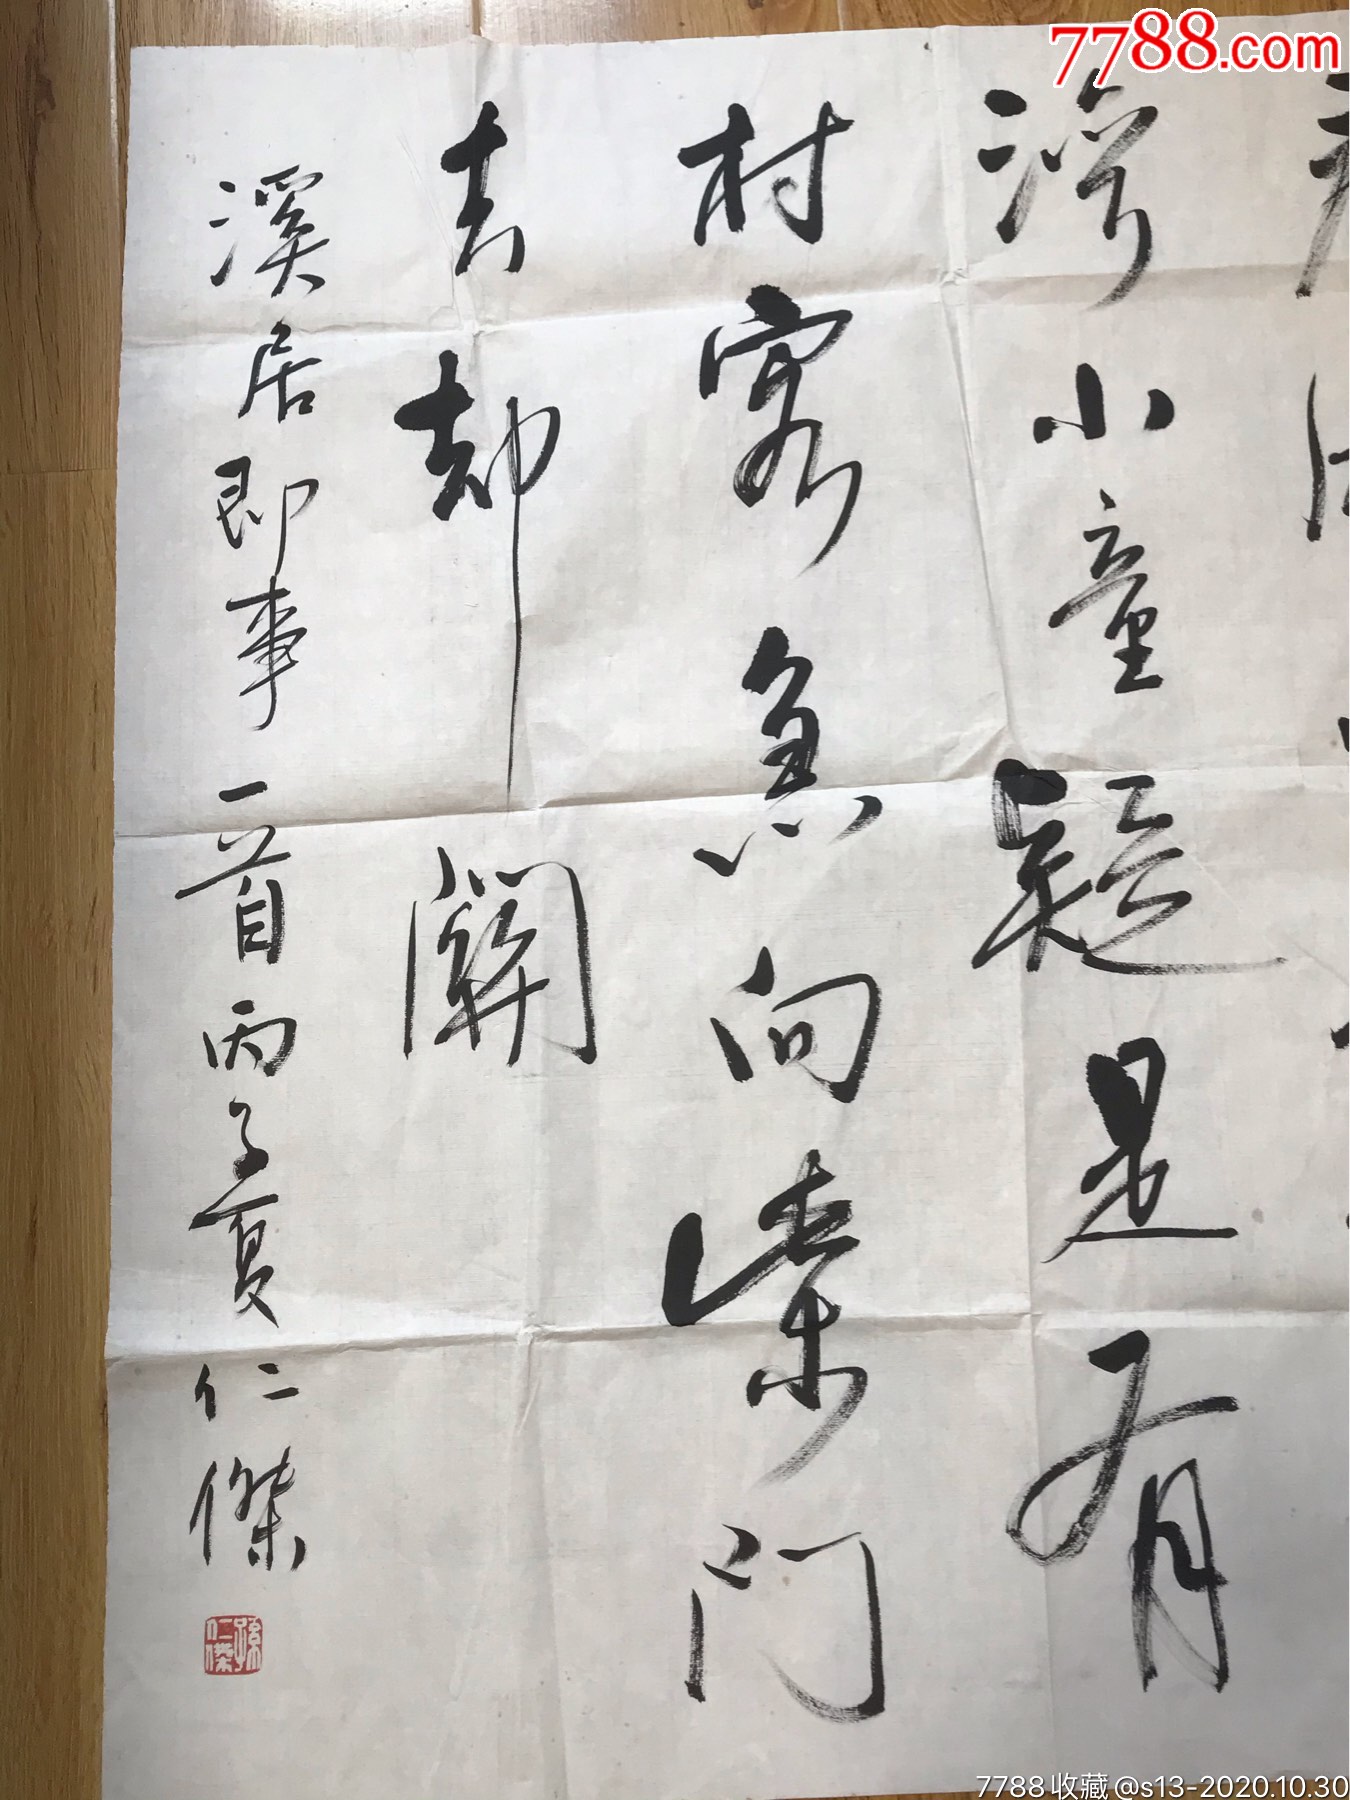 7788.com
灣小童疑是有
村客急向柴門
去却關
溪居即事一首丙子夏仁傑
孫仁傑
7788收藏 @s13-2020.10.30